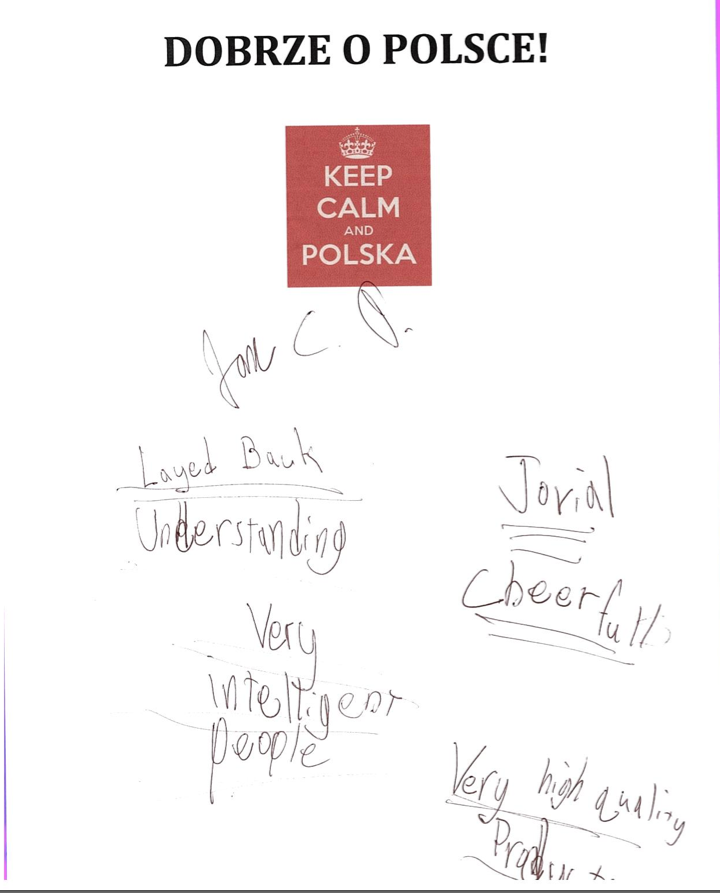 DOBRZE O POLSCE!
KEEP
CALM
AND
POLSKA
C. P.
Layed Back
Understanding
Jovial
Cheerfull
Very
intelligent
people
Very high quality